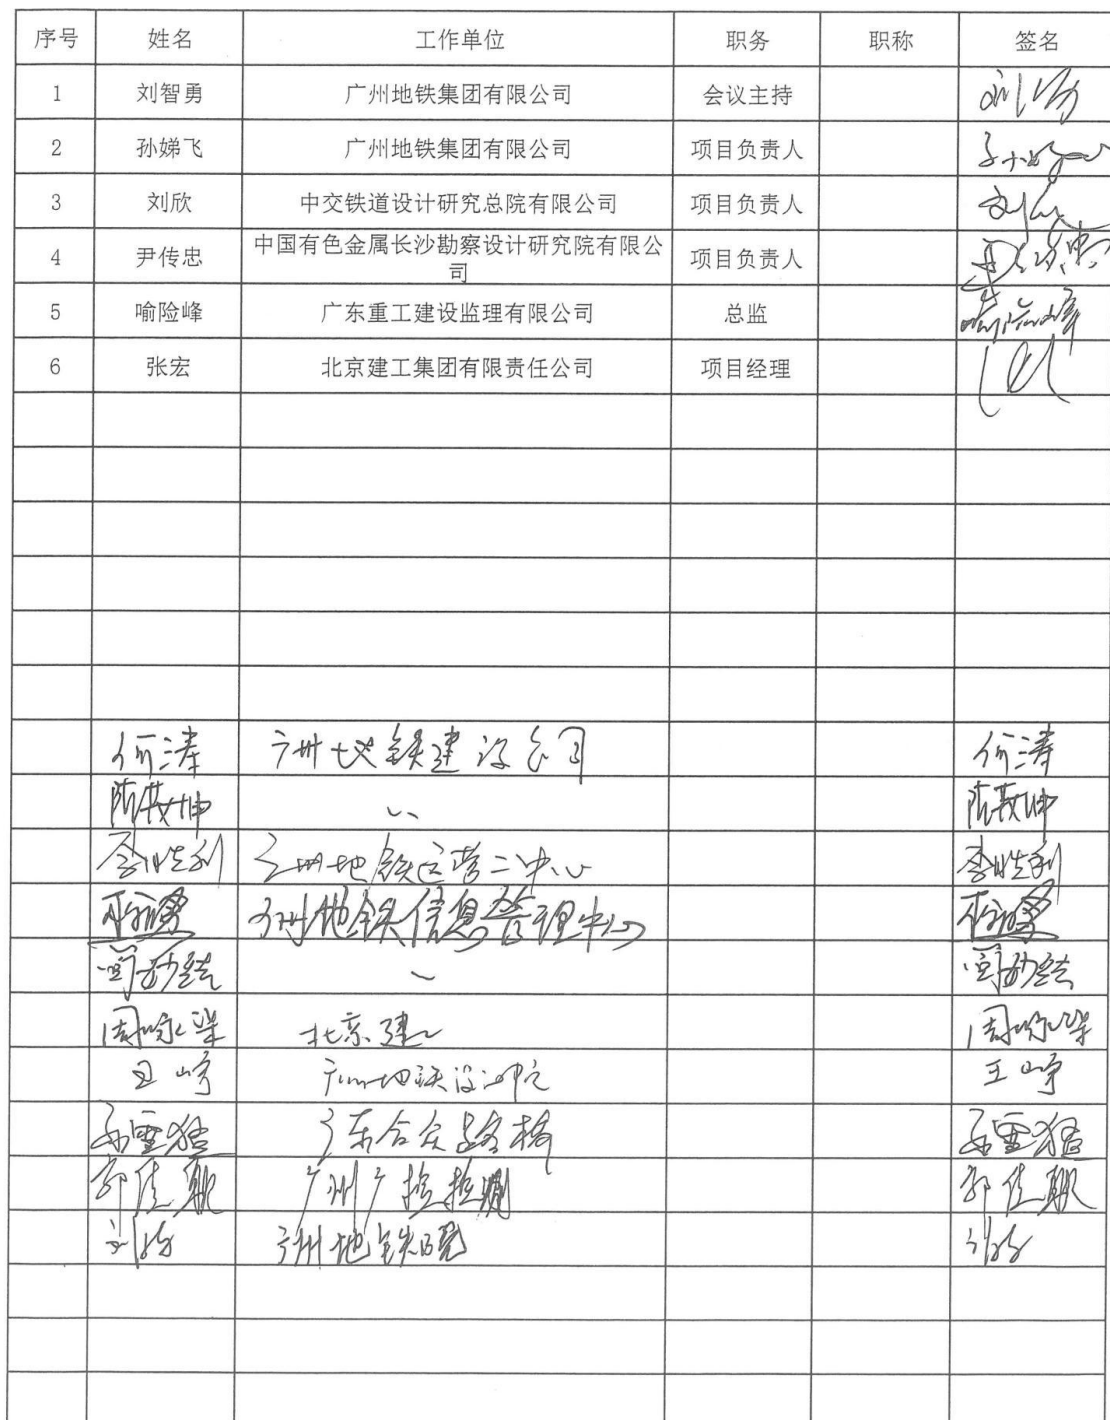 序号 姓名 工作单位 职务 职称 签名
1 刘智勇 广州地铁集团有限公司 会议主持
2 孙娣飞 广州地铁集团有限公司 项目负责人
3 刘欣 中交铁道设计研究总院有限公司 项目负责人 刘欣
4 尹传忠 中国有色金属长沙勘察设计研究院有限公
司 项目负责人 尹传忠
5 喻险峰 广东重工建设监理有限公司 总监 喻险峰
6 张宏 北京建工集团有限责任公司 项目经理
何涛 广州地铁建设公司 何涛
陈敬坤 陈敬坤
李胜利 广州地铁运营二中心 李胜利
广州地铁信息管理中心
北京建工
王峥 广州地铁设计院 王峥
广东合众路桥
郭佳 广州广检检测 郭佳
广州地铁